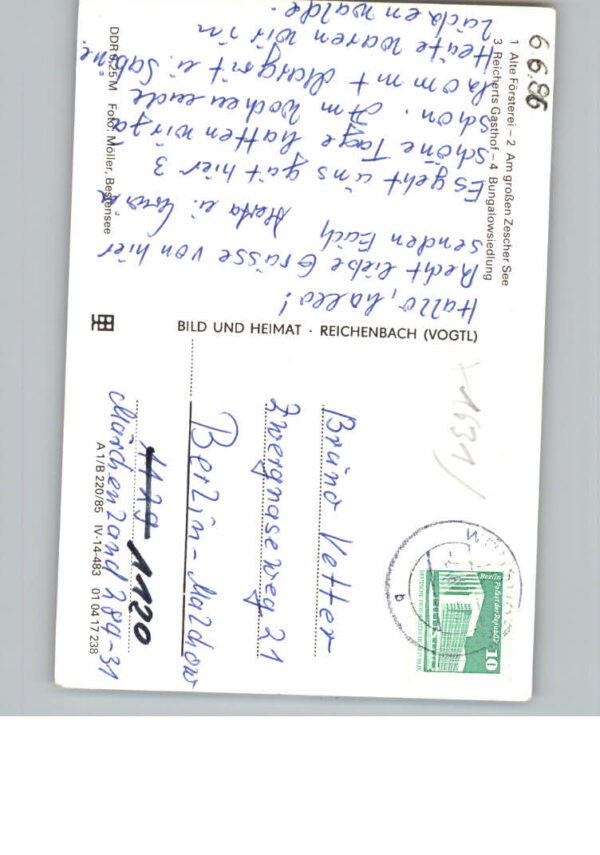 6.6.86
1 Alte Försterei – 2 Am großen Zescher See
3 Reicherts Gasthof – 4 Bungalowsiedlung
Hallo, hallo!
Recht liebe Grüsse von hier
senden Euch Herta u.
Es geht uns gut hier 3
schöne Tage hatten wir ja
schon. Am Wochenende
komm t Margrit u. Sabine.
Heute waren wir in
DDR 0,25 M Foto: Möller, Bestensee
BILD UND HEIMAT · REICHENBACH (VOGTL)
Berlin · Palast der Republik
10
b
Bruno Vetter
Zwergnaseweg 21
Berlin-Malchow
1129 1120
Märchenland 284-31
A 1/B 220/85 IV-14-483 01 04 17 238